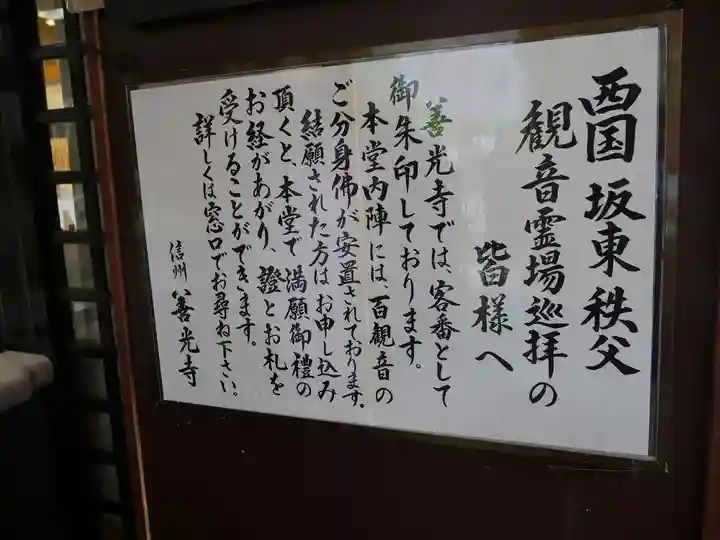 西国坂東秩父
観音霊場巡拝の
皆様へ
善光寺では、客番として
御朱印しております。
本堂内陣には、百観音の
ご分身佛が安置されております。
結願された方はお申し込み
頂くと、本堂で満願御禮の
お経があがり、證とお札を
受けることができます。
詳しくは窓口でお尋ね下さい。
信州 善光寺